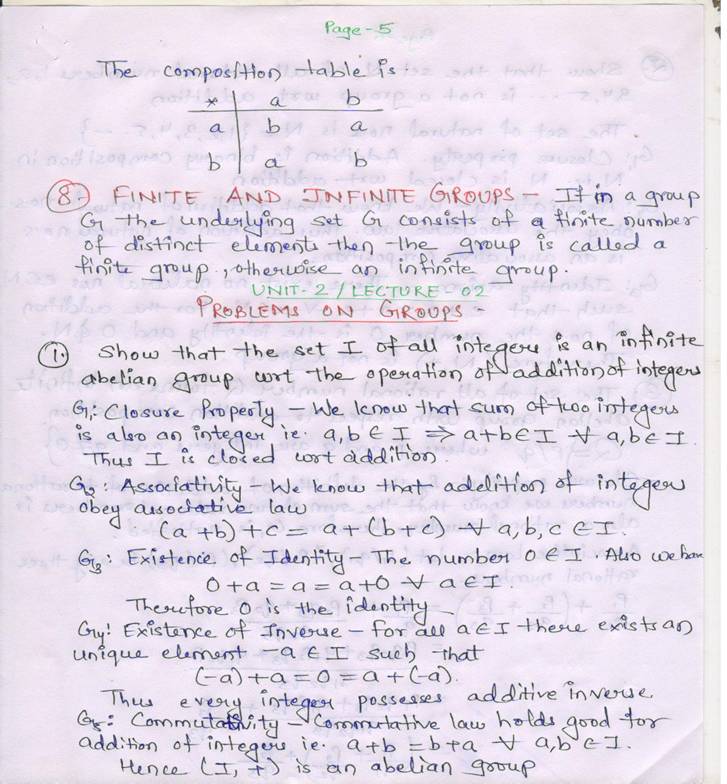 Page-5
The composition table is
* | a b
a | b a
b | a b
8. FINITE AND INFINITE GROUPS - If in a group
G the underlying set G consists of a finite number
of distinct elements then the group is called a
finite group, otherwise an infinite group.
UNIT-2 / LECTURE 02
PROBLEMS ON GROUPS -
1. Show that the set I of all integers is an infinite
abelian group wrt the operation of addition of integers
G1: Closure Property - We know that sum of two integers
is also an integer ie. a,b ∈ I => a+b ∈ I ∀ a,b ∈ I.
Thus I is closed wrt addition.
G2: Associativity - We know that addition of integers
obey associative law
(a+b)+c = a+(b+c) ∀ a,b,c ∈ I.
G3: Existence of Identity - The number 0 ∈ I. Also we have
0+a = a = a+0 ∀ a ∈ I.
Therefore 0 is the identity
G4: Existence of Inverse - For all a ∈ I there exists an
unique element -a ∈ I such that
(-a)+a = 0 = a+(-a).
Thus every integer possesses additive inverse.
G5: Commutativity - Commutative law holds good for
addition of integers ie. a+b = b+a ∀ a,b ∈ I.
Hence (I, +) is an abelian group